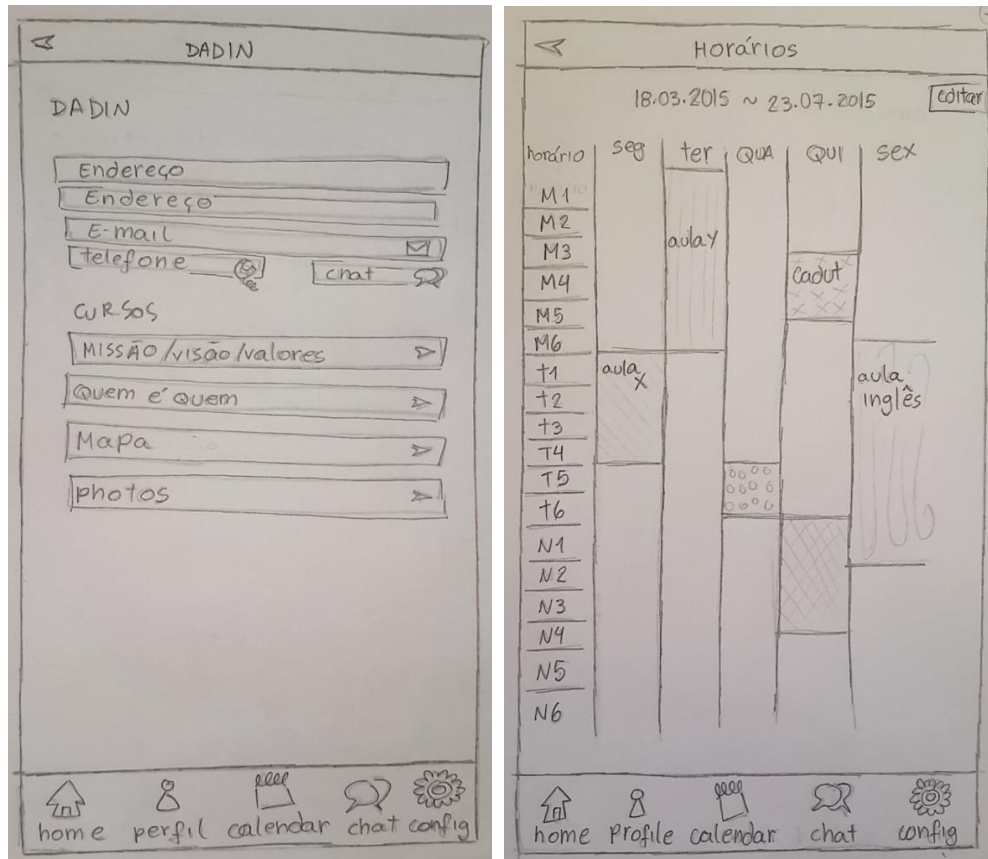 DADIN
DADIN
Endereço
Endereço
E-mail
telefone chat
CURSOS
MISSÃO/visão/valores
Quem é quem
Mapa
photos
home perfil calendar chat config
Horários
18.03.2015 ~ 23.07.2015 editar
horário seg ter QUA QUI sex
M1
M2
M3 aula y
M4 cadut
M5
M6
t1 aula x aula
t2 inglês
t3
T4
T5
t6
N1
N2
N3
N4
N5
N6
home Profile calendar chat config